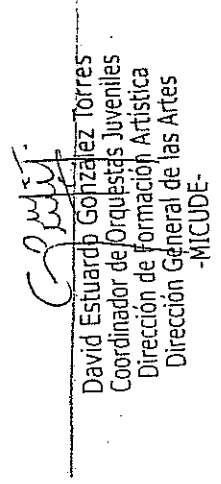 David Estuardo González Torres
Coordinador de Orquestas Juveniles
Dirección de Formación Artistica
Dirección General de las Artes
-MICUDE-